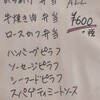 弁当 ALL
手捏き鶏 弁当 ¥600
ロースかつ 弁当 +税
ハンバーグピラフ
ソーセージピラフ
シーフードピラフ
スパゲティミートソース